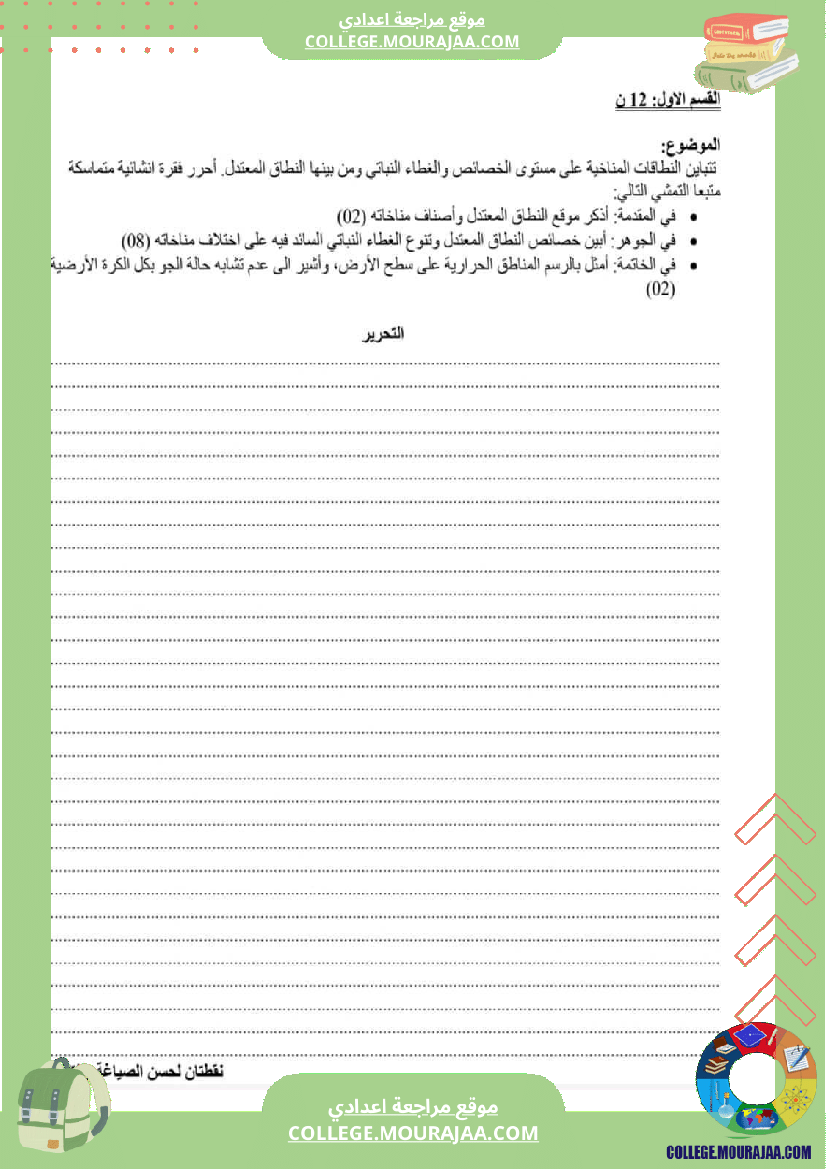 موقع مراجعة اعدادي
COLLEGE.MOURAJAA.COM
القسم الاول: 12 ن
الموضوع:
تتباين النطاقات المناخية على مستوى الخصائص والغطاء النباتي ومن بينها النطاق المعتدل. أحرر فقرة انشائية متماسكة
متبعا التمشي التالي:
• في المقدمة: أذكر موقع النطاق المعتدل وأصناف مناخاته (02)
• في الجوهر: أبين خصائص النطاق المعتدل وتنوع الغطاء النباتي السائد فيه على اختلاف مناخاته (08)
• في الخاتمة: أمثل بالرسم المناطق الحرارية على سطح الأرض، وأشير الى عدم تشابه حالة الجو بكل الكرة الأرضية
(02)
التحرير
نقطتان لحسن الصياغة
موقع مراجعة اعدادي
COLLEGE.MOURAJAA.COM
COLLEGE.MOURAJAA.COM